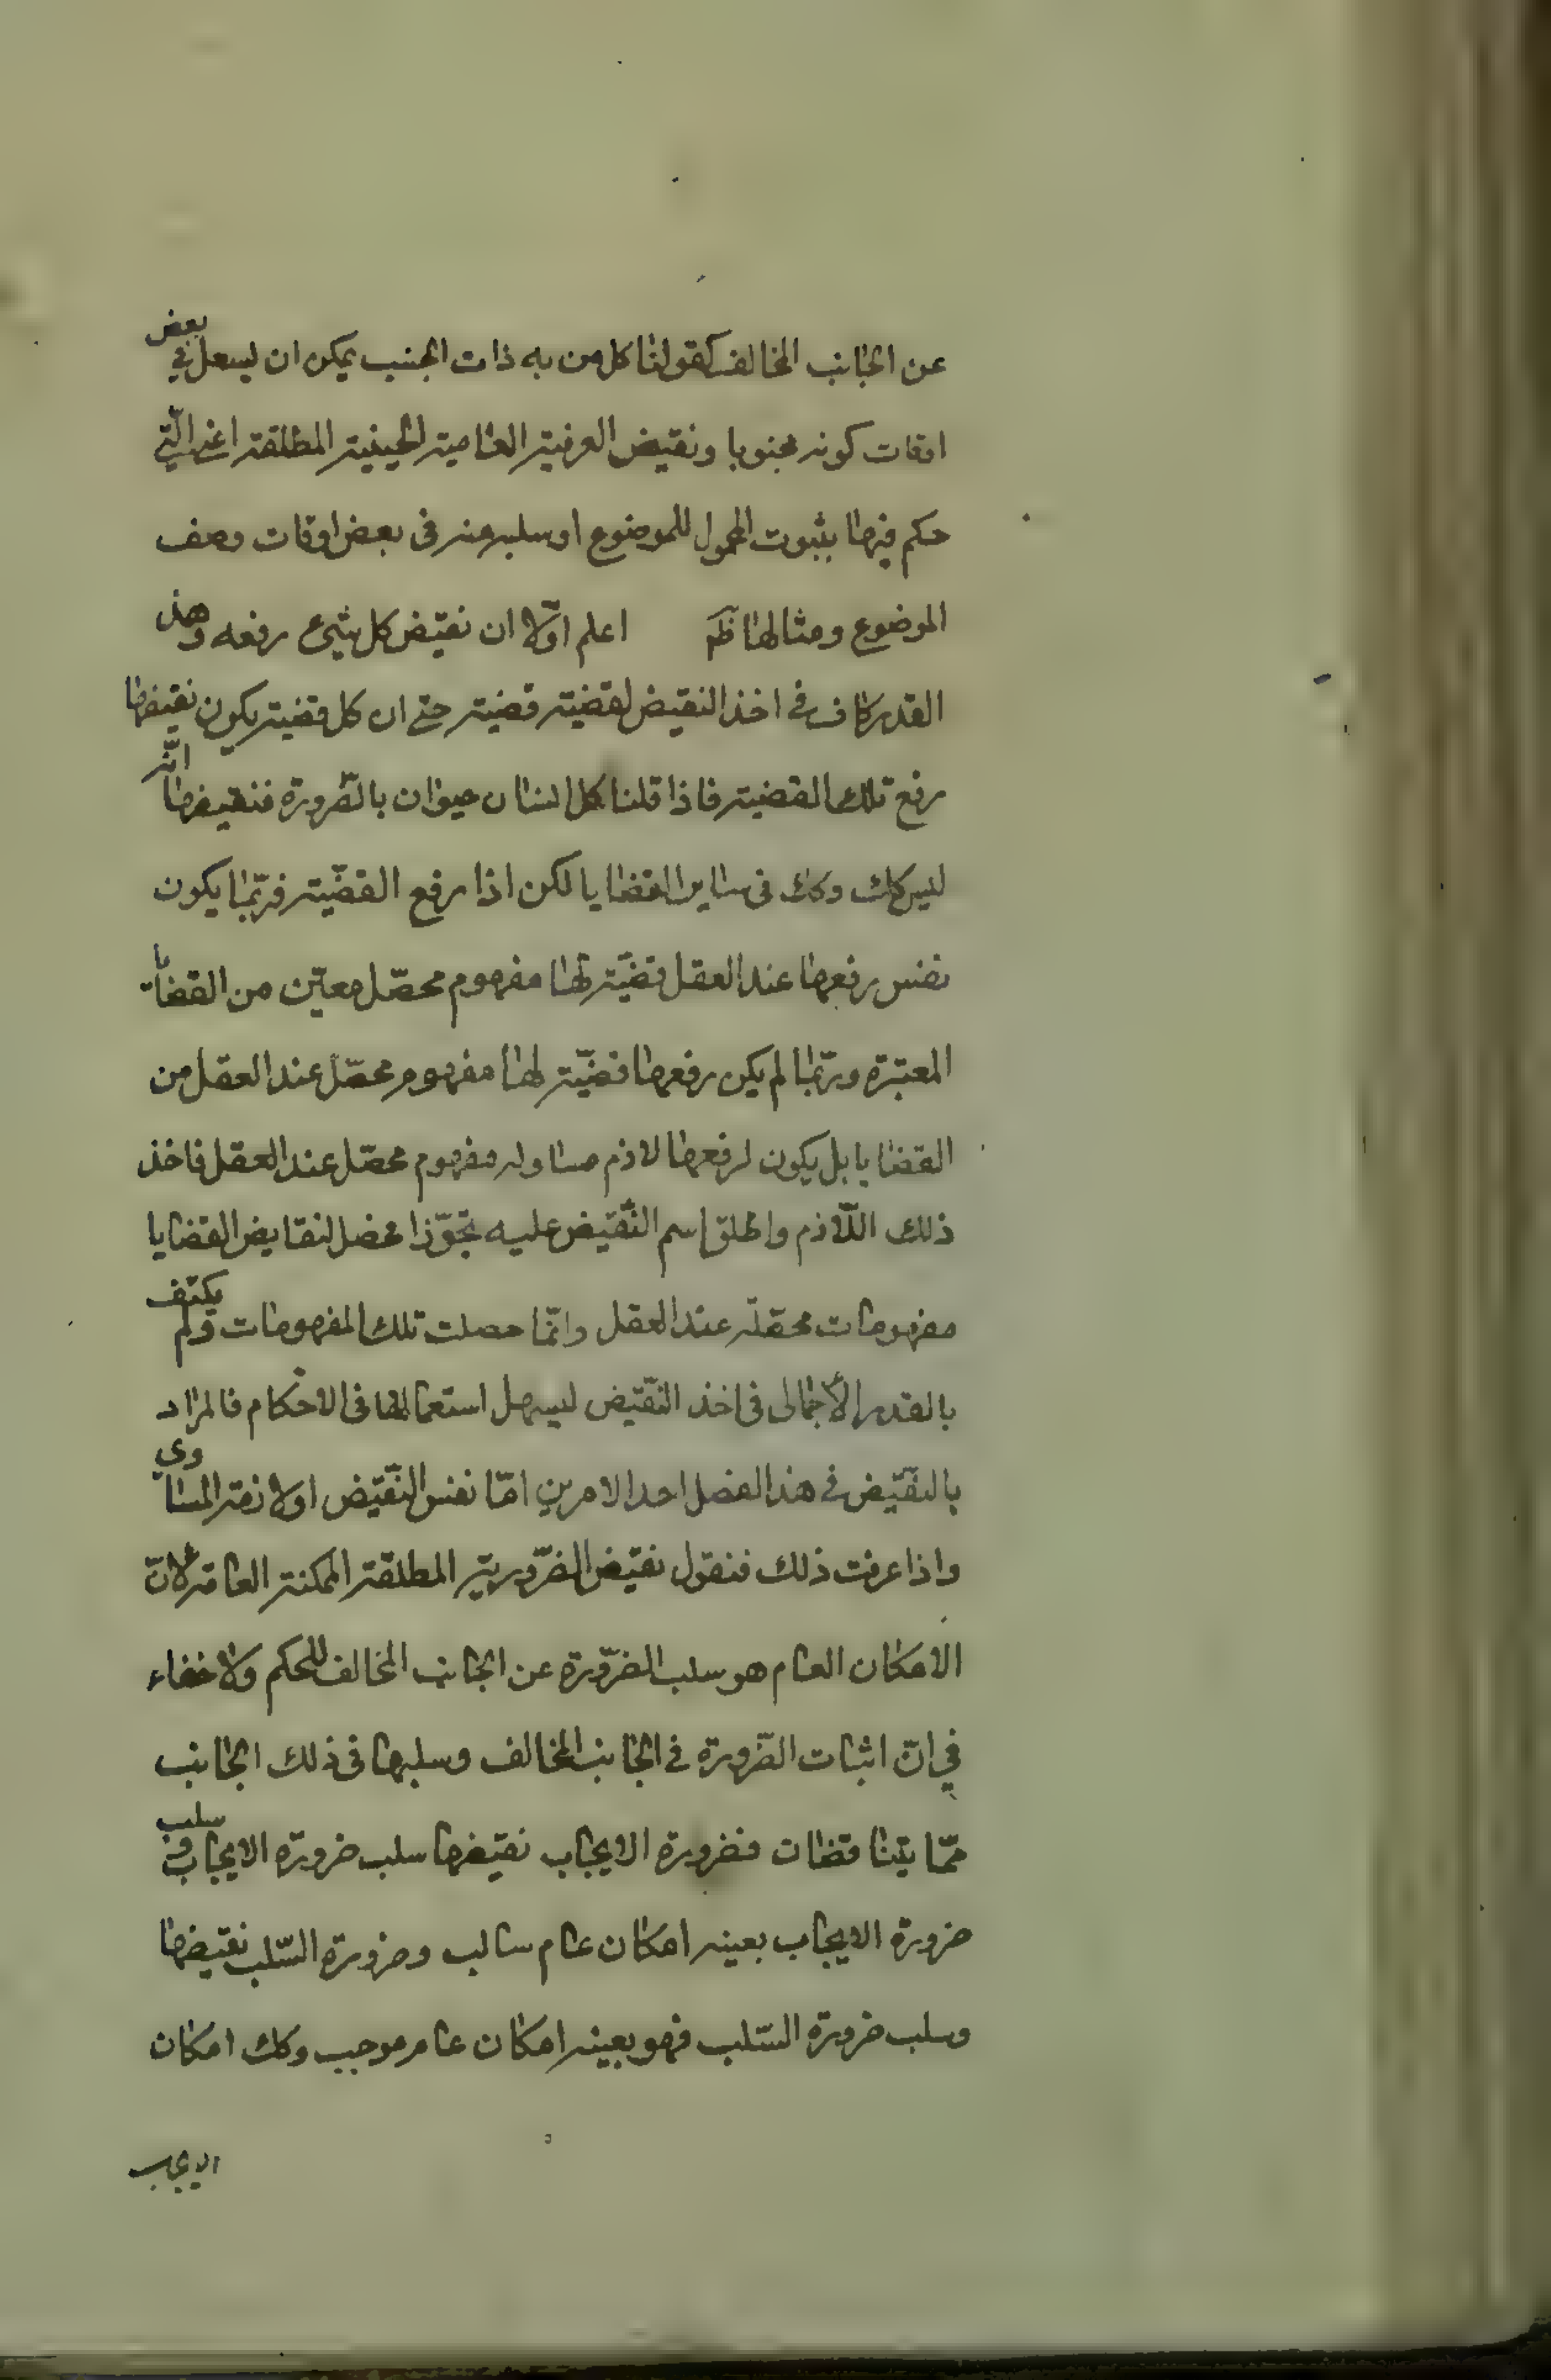 عن الجانب المخالف كقولنا كل من به ذات الجنب يمكن ان يسعل في بعض
اوقات كونه مجنوبا ونقيض العرفية العامية الحينية المطلقة اعنى التي
حكم فيها بثبوت المحمول للموضوع او سلبه عنه فى بعض اوقات وصف
الموضوع ومثالها ظم اعلم اوّلا ان نقيض كل شيء رفعه وهذا
القدر كاف فى اخذ النقيض لقضية قضية حتى ان كل قضية يكون نقيضها
رفع تلك القضية فاذا قلنا كل انسان حيوان بالضّرورة فنقيضها انّه
ليس كك وكك فى ساير القضايا لكن اذا رفع القضيّة فربّما يكون
نفس رفعها عند العقل قضيّة لها مفهوم محصّل معيّن من القضايا
المعتبرة وربّما لم يكن رفعها قضيّة لها مفهوم محصّل عند العقل من
القضايا بل يكون لرفعها لازم مساو له مفهوم محصّل عند العقل فاخذ
ذلك اللّازم واطلق اسم النّقيض عليه تجوّزا محصل لنقايض القضايا
مفهومات محصّلة عند العقل وانّما حصلت تلك المفهومات ولم يكتف
بالقدر الأجمالى فى اخذ النّقيض ليسهل استعمالها فى الاحكام فالمراد
بالنّقيض فى هذا الفصل احد الامرين امّا نفس النّقيض او لازمه المساوي
واذا عرفت ذلك فنقول نقيض الضّروريّة المطلقة الممكنة العامّة لانّ
الامكان العام هو سلب الضّرورة عن الجانب المخالف للحكم ولا خفاء
في انّ اثبات الضّرورة فى الجانب المخالف وسلبها فى ذلك الجانب
ممّا يتناقضان فضرورة الايجاب نقيضها سلب ضرورة الايجاب وسلب
ضرورة الايجاب بعينه امكان عام سالب وضرورة السّلب نقيضها
وسلب ضرورة السّلب فهو بعينه امكان عام موجب وكك امكان
الايجاب